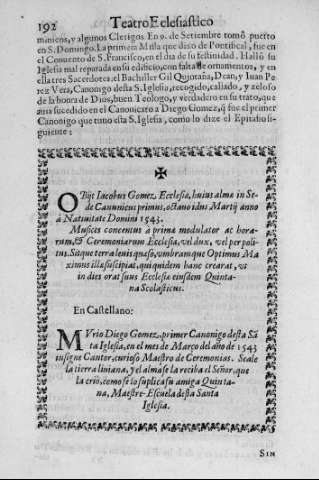 192 Teatro Eclesiastico
minicos, y algunos Clerigos. En 9. de Setiembre tomò puerto
en S. Domingo. La primera Missa que dixo de Pontifical, fue en
el Convento de S. Francisco, en el dia de su festividad. Hallò su
Iglesia mal reparada en su edificio, con falta de ornamentos, y en
ella tres Sacerdotes, el Bachiller Gil Quintaña, Dean, y Iuan Pe
rez Vera, Canonigo desta S. Iglesia, recogido, callado, y zeloso
de la honra de Dios, buen Teologo, y verdadero en su trato, que
avia sucedido en el Canonicato a Diego Gomez, q̃ fue el primer
Canonigo que tuvo esta S. Iglesia, como lo dize el Epitafio si-
guiente:
OBijt Iacobus Gomez, Ecclesiæ, huius alma in Se-
de Canonicus primus, octavo idus Martij anno
à Natiuitate Domini 1543.
Musices concentus à prima modulator ac hora-
rum, & Ceremoniarum Ecclesiæ, vel dux, vel per poli-
tus. Sit que terra lenis quæso, umbramque Optimus Ma
ximus illa suscipiat, qui quidem hanc crearat, vt
in dies orat suus Ecclesiæ eiusdem Quinta-
na Scholasticus.
En Castellano:
MVrio Diego Gomez, primer Canonigo desta Sã
ta Iglesia, en el mes de Março del año de 1543
insigne Cantor, curioso Maestro de Ceremonias. Seale
la tierra liviana, y el alma se la reciba el Señor, que
la criò, como se lo suplica su amigo Quinta-
na, Maestre-Escuela desta Santa
Iglesia.
SIN